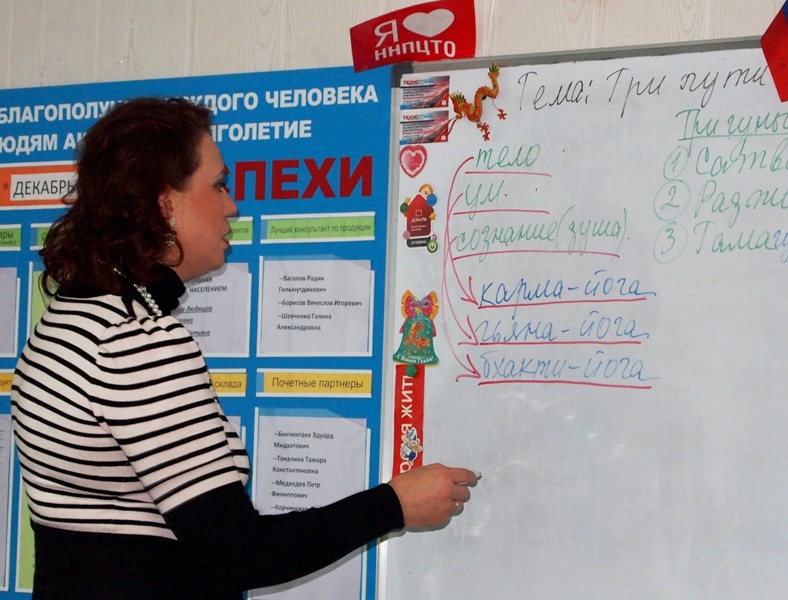 Я
ННПЦТО
БЛАГОПОЛУ ЖДОГО ЧЕЛОВЕКА
ЮДЯМ АК ЛГОЛЕТИЕ
ПЕХИ
* ДЕКАБРЬ
Лучший консультант по продукции
--Вагапов Радик
Гильмутдинович
--Борисов Вячеслав Игоревич
--Шевченко Галина
Александровна
НАСЕЛЕНИЕМ
Людмила
склада
Почетные партнеры
--Бикчентаев Эдуард
Мидхатович
--Токалина Тамара
Константиновна
--Медведев Петр
Филиппович
Тема: Три пути
тело
ум.
сознание (душа).
карма-йога
гьяна-йога
бхакти-йога
Три гуны
1 Сатв
2 Раджа
3 Тамагу
Я ЖИТ